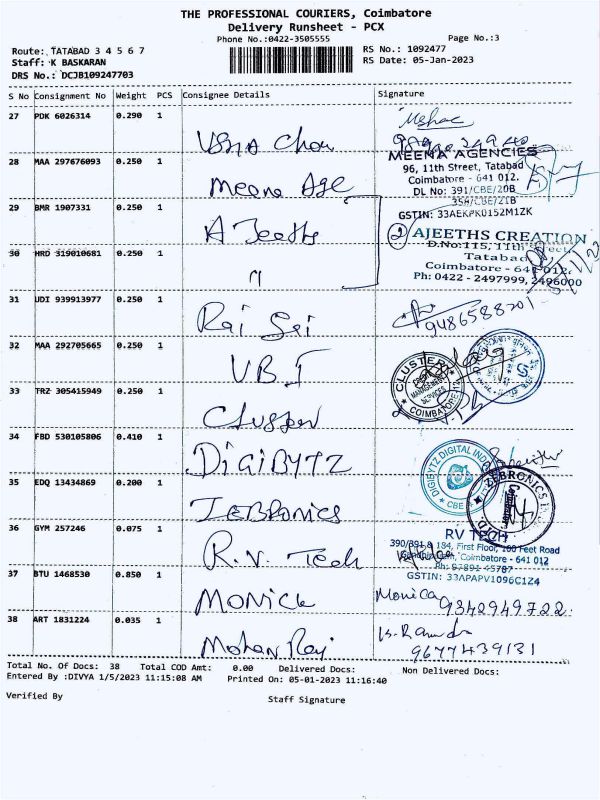 THE PROFESSIONAL COURIERS, Coimbatore
Delivery Runsheet - PCX
Phone No.:0422-3505555
Page No.:3
Route: TATABAD 3 4 5 6 7
Staff: K BASKARAN
DRS No.: DCJB109247703
RS No.: 1092477
RS Date: 05-Jan-2023
S No Consignment No Weight PCS Consignee Details Signature
27 PDK 6026314 0.290 1
28 MAA 297676093 0.250 1 Meena Age
MEENA AGENCIES
96, 11th Street, Tatabad
Coimbatore - 641 012.
DL No: 391/CBE/20B
GSTIN: 33AEKPK0152M1ZK
29 BMR 1907331 0.250 1 A Jeeths
2 AJEETHS CREATION
D.No:115, 11th Street
Tatabad
Coimbatore - 641 012.
Ph: 0422 - 2497999, 2496000
30 HRD 319010681 0.250 1 "
31 UDI 939913977 0.250 1 Rai Sei
9486588201
32 MAA 292705665 0.250 1 V.B.I
33 TRZ 305415949 0.250 1
CLUSTERY
MANAGEMENT
SERVICES
COIMBATORE
34 FBD 530105806 0.410 1 DIGIBYTZ
DIGIBYTZ DIGITAL
CBE
35 EDQ 13434869 0.200 1 ZEBRONICS
ZEBRONICS
36 GYM 257246 0.075 1 R.V. Tech
RV TECH
First Floor, 100 Feet Road
Coimbatore - 641 012
GSTIN: 33APAPV1096C1Z4
37 BTU 1468530 0.850 1 MONICA
Monica 9342949722
38 ART 1831224 0.035 1 Mohan Raj
9677439131
Total No. Of Docs: 38 Total COD Amt: 0.00 Delivered Docs: Non Delivered Docs:
Entered By :DIVYA 1/5/2023 11:15:08 AM Printed On: 05-01-2023 11:16:40
Verified By
Staff Signature